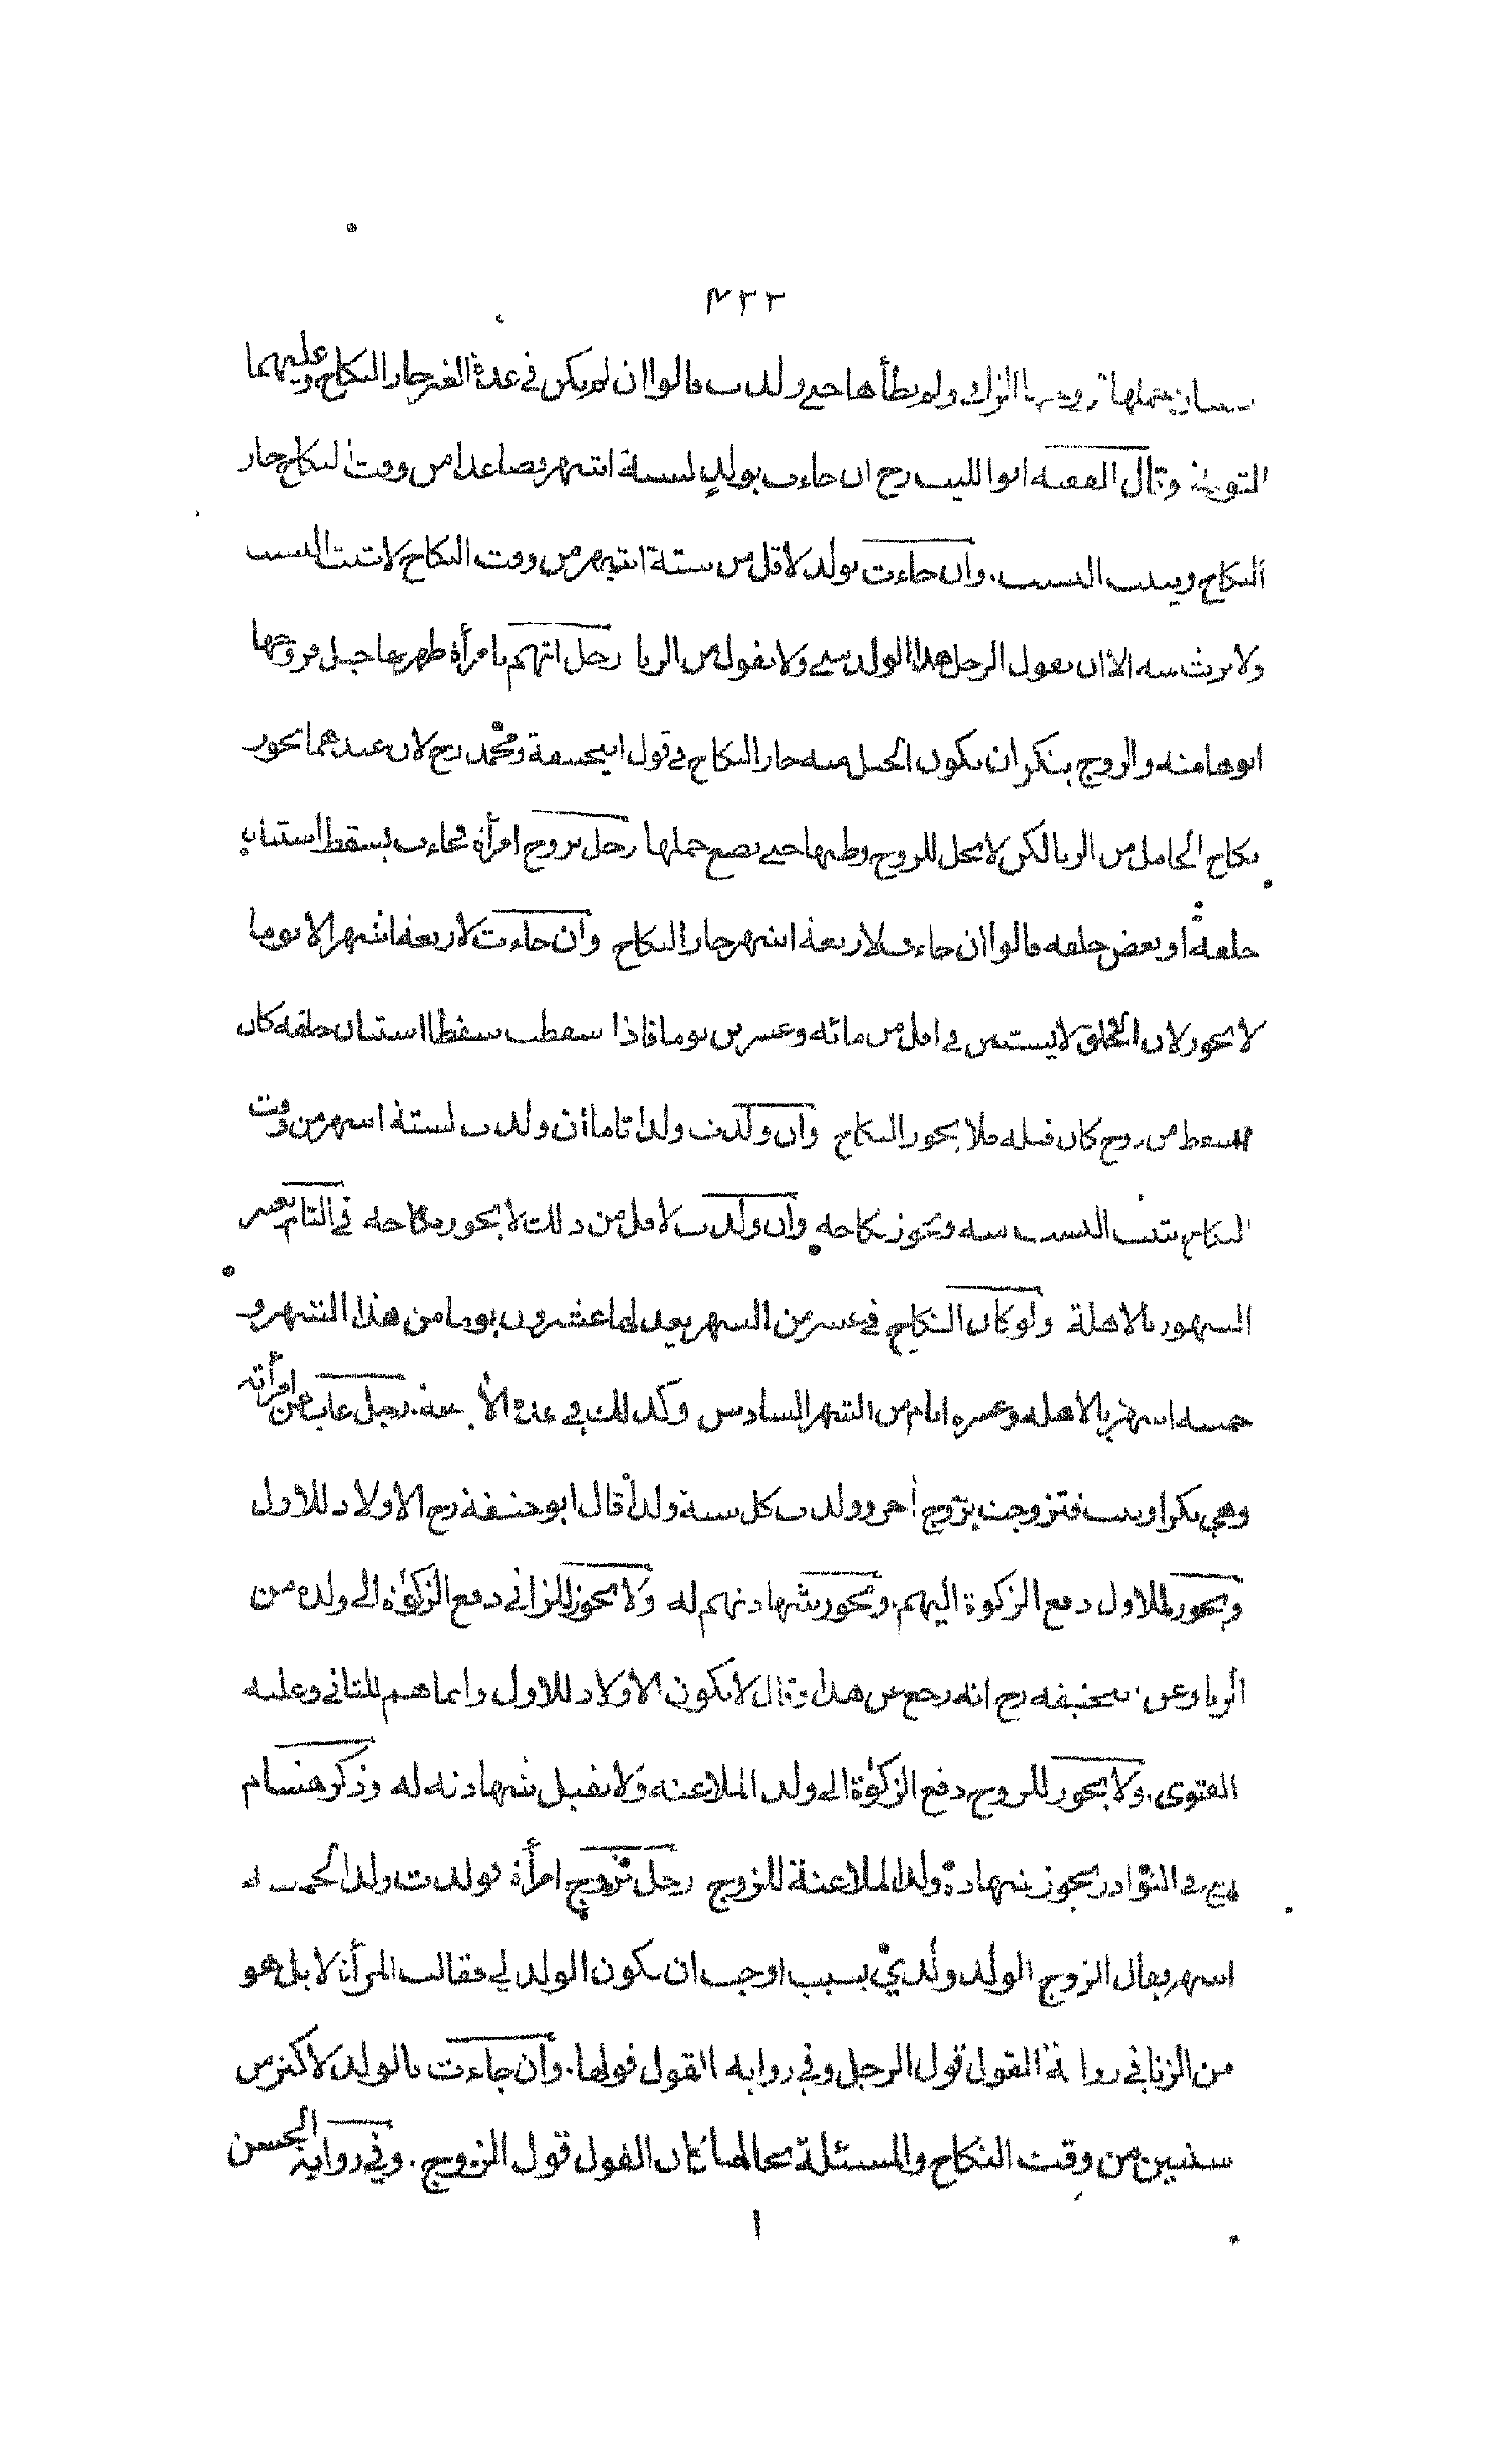 ٤٢٢
الزاني ولم يطأها حتى ولدت قالوا ان لم يكن في عدة الغير جاز النكاح وعليهما
التوبة وقال الفقيه ابو الليث رح ان جاءت بولد لستة اشهر فصاعدا من وقت النكاح جاز
النكاح ويثبت النسب. وان جاءت بولد لاقل من ستة اشهر من وقت النكاح لا يثبت النسب
ولا يرث منه الا ان يقول الرجل هذا الولد مني ولا يقول من الزنا رجل اتهم بامرأة ظهر بها حبل فزوجها
ابوها منه والزوج ينكر ان يكون الحبل منه جاز النكاح في قول ابيحنيفة ومحمد رح لان عندهما يجوز
نكاح الحامل من الزنا لكن لا يحل للزوج وطيها حتى تضع حملها رجل تزوج امرأة فجاءت بسقط استبان
خلقه او بعض خلقه قالوا ان جاءت لاربعة اشهر جاز النكاح وان جاءت لاربعة اشهر الا يوما
لا يجوز لان الخلق لا يستبين في اقل من مائة وعشرين يوما فاذا سقطت سقطا استبان خلقه كان
السقط من زوج كان قبله فلا يجوز النكاح وان ولدت ولدا تاما ان ولدت لستة اشهر من وقت
النكاح يثبت النسب منه ويجوز نكاحه وان ولدت لاقل من ذلك لا يجوز نكاحه في التام يعتبر
الشهور بالاهلة ولو كان النكاح في عشر من الشهر يعد لها عشرون يوما من هذا الشهر و
خمسة اشهر بالاهلة وعشرة ايام من الشهر السادس وكذلك في عدة رجل غاب عن امرأته
وهي بكر او ثيب فتزوجت بزوج آخر وولدت كل سنة ولدا قال ابو حنيفة رح الاولاد للاول
ويجوز للاول دفع الزكوة اليهم. ويجوز شهادتهم له ولا يجوز للزاني دفع الزكوة الى ولده من
الزنا وعن ابيحنيفة رح انه رجع عن هذا وقال لا يكون الاولاد للاول وانما هم للثاني وعليه
الفتوى. ولا يجوز للزوج دفع الزكوة الى ولد الملاعنة ولا تقبل شهادته له وذكر هشام
رح في النوادر يجوز شهادة ولد الملاعنة للزوج رجل تزوج امرأة فولدت ولدا لخمسة
اشهر فقال الزوج الولد ولدي بسبب اوجب ان يكون الولد لي فقالت المرأة لا بل هو
من الزنا في رواية القول قول الرجل وفي رواية القول قولها. وان جاءت بالولد لاكثر من
سنتين من وقت النكاح والمسئلة بحالها كان القول قول الزوج. وفي رواية الحسن
ا